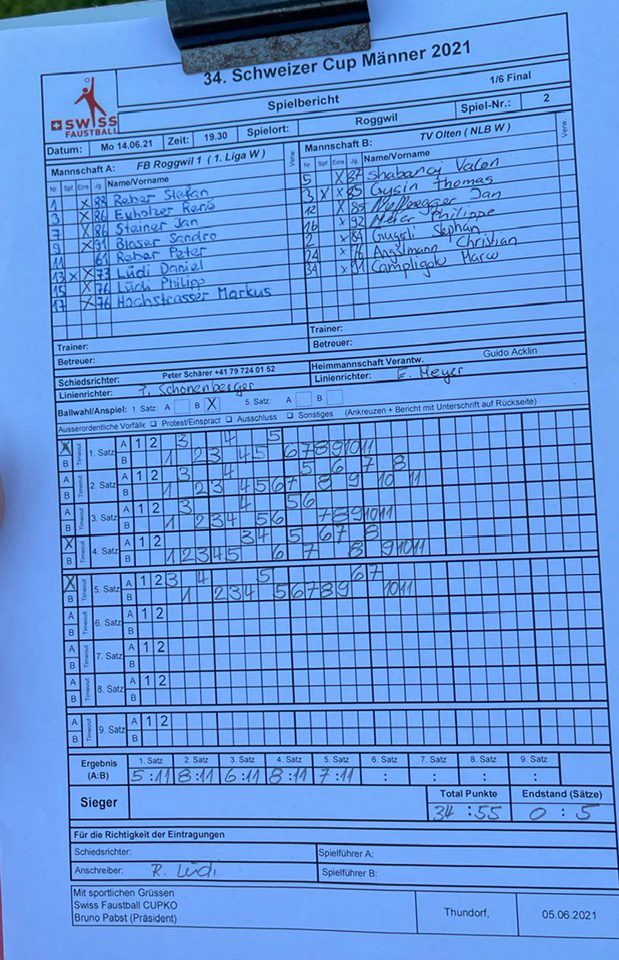 34. Schweizer Cup Männer 2021
SWISS FAUSTBALL
Spielbericht 1/6 Final
Datum: Mo 14.06.21 Zeit: 19.30 Spielort: Roggwil Spiel-Nr.: 2
Mannschaft A: FB Roggwil 1 ( 1. Liga W ) Verw.
Mannschaft B: TV Olten ( NLB W ) Verw.
Nr Spf Eins Jg Name/Vorname
1 X 88 Reber Stefan
3 X 86 Eyholzer René
7 X 86 Steiner Jan
9 X 91 Blaser Sandro
11 61 Reber Peter
13 X X 73 Lüdi Daniel
15 X 76 Lüdi Philipp
17 X 76 Hochstrasser Markus
Nr Spf Eins Jg Name/Vorname
5 X 87 Shabanaj Valon
3 X X 85 Gysin Thomas
12 X 85 Jan
16 X 92 Meier Philippe
2 X 84 Stephan
24 X 76 Angstmann Christian
34 X 91 Marco
Trainer:
Betreuer:
Trainer:
Betreuer:
Schiedsrichter: Peter Schärer +41 79 724 01 52
Heimmannschaft Verantw. Guido Acklin
Linienrichter: P. Schönenberger
Linienrichter: E. Meyer
Ballwahl/Anspiel: 1. Satz: A B X 5. Satz: A B
Ausserordentliche Vorfälle Protest/Einspracl Ausschluss Sonstiges (Ankreuzen + Bericht mit Unterschrift auf Rückseite)
X B Timeout 1. Satz A 1 2 3 4 5
B 1 2 3 4 5 6 7 8 9 10 11
A B Timeout 2. Satz A 1 2 3 4 5 6 7 8
B 1 2 3 4 5 6 7 8 9 10 11
A B Timeout 3. Satz A 1 2 3 4 5 6
B 1 2 3 4 5 6 7 8 9 10 11
X B Timeout 4. Satz A 1 2 3 4 5 6 7 8
B 1 2 3 4 5 6 7 8 9 10 11
X B Timeout 5. Satz A 1 2 3 4 5 6 7
B 1 2 3 4 5 6 7 8 9 10 11
A B Timeout 6. Satz A 1 2
B
A B Timeout 7. Satz A 1 2
B
A B Timeout 8. Satz A 1 2
B
A B Timeout 9. Satz A 1 2
B
1. Satz 2. Satz 3. Satz 4. Satz 5. Satz 6. Satz 7. Satz 8. Satz 9. Satz
Ergebnis (A:B) 5 :11 8 :11 6 :11 8 :11 7 :11 : : : :
Sieger
Total Punkte Endstand (Sätze)
34 : 55 0 : 5
Für die Richtigkeit der Eintragungen
Schiedsrichter: Spielführer A:
Anschreiber: R. Lüdi Spielführer B:
Mit sportlichen Grüssen
Swiss Faustball CUPKO
Bruno Pabst (Präsident)
Thundorf, 05.06.2021